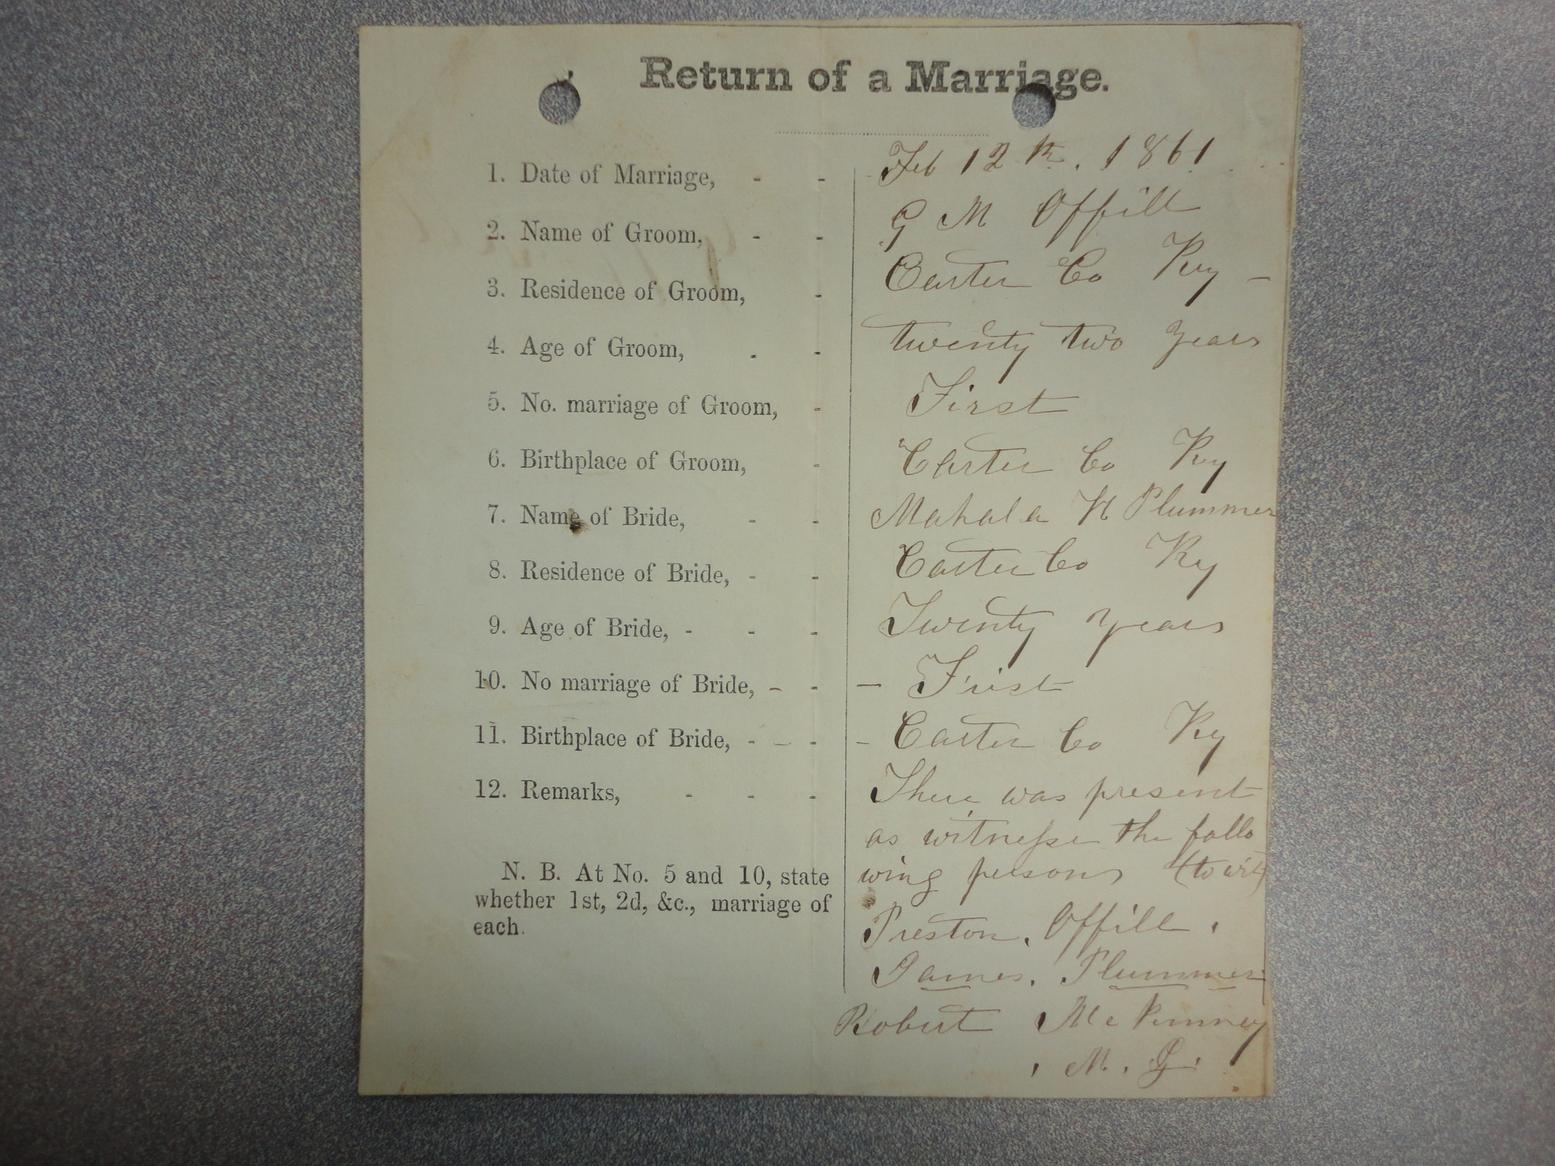 Return of a Marriage.
1. Date of Marriage, - - Feb 12th. 1861
2. Name of Groom, - - G M Offill
3. Residence of Groom, - Carter Co Ky -
4. Age of Groom, - - twenty two years
5. No. marriage of Groom, - First
6. Birthplace of Groom, - Carter Co Ky
7. Name of Bride, - - Mahala H Plummer
8. Residence of Bride, - - Carter Co Ky
9. Age of Bride, - - - Twenty years
10. No marriage of Bride, - - - First
11. Birthplace of Bride, - - - - Carter Co Ky
12. Remarks, - - - There was present
as witnesse the follo
wing persons (to wit)
N. B. At No. 5 and 10, state
whether 1st, 2d, &c., marriage of
each.
Preston. Offill.
James. Plummer
Robert McKinney
. M. G.